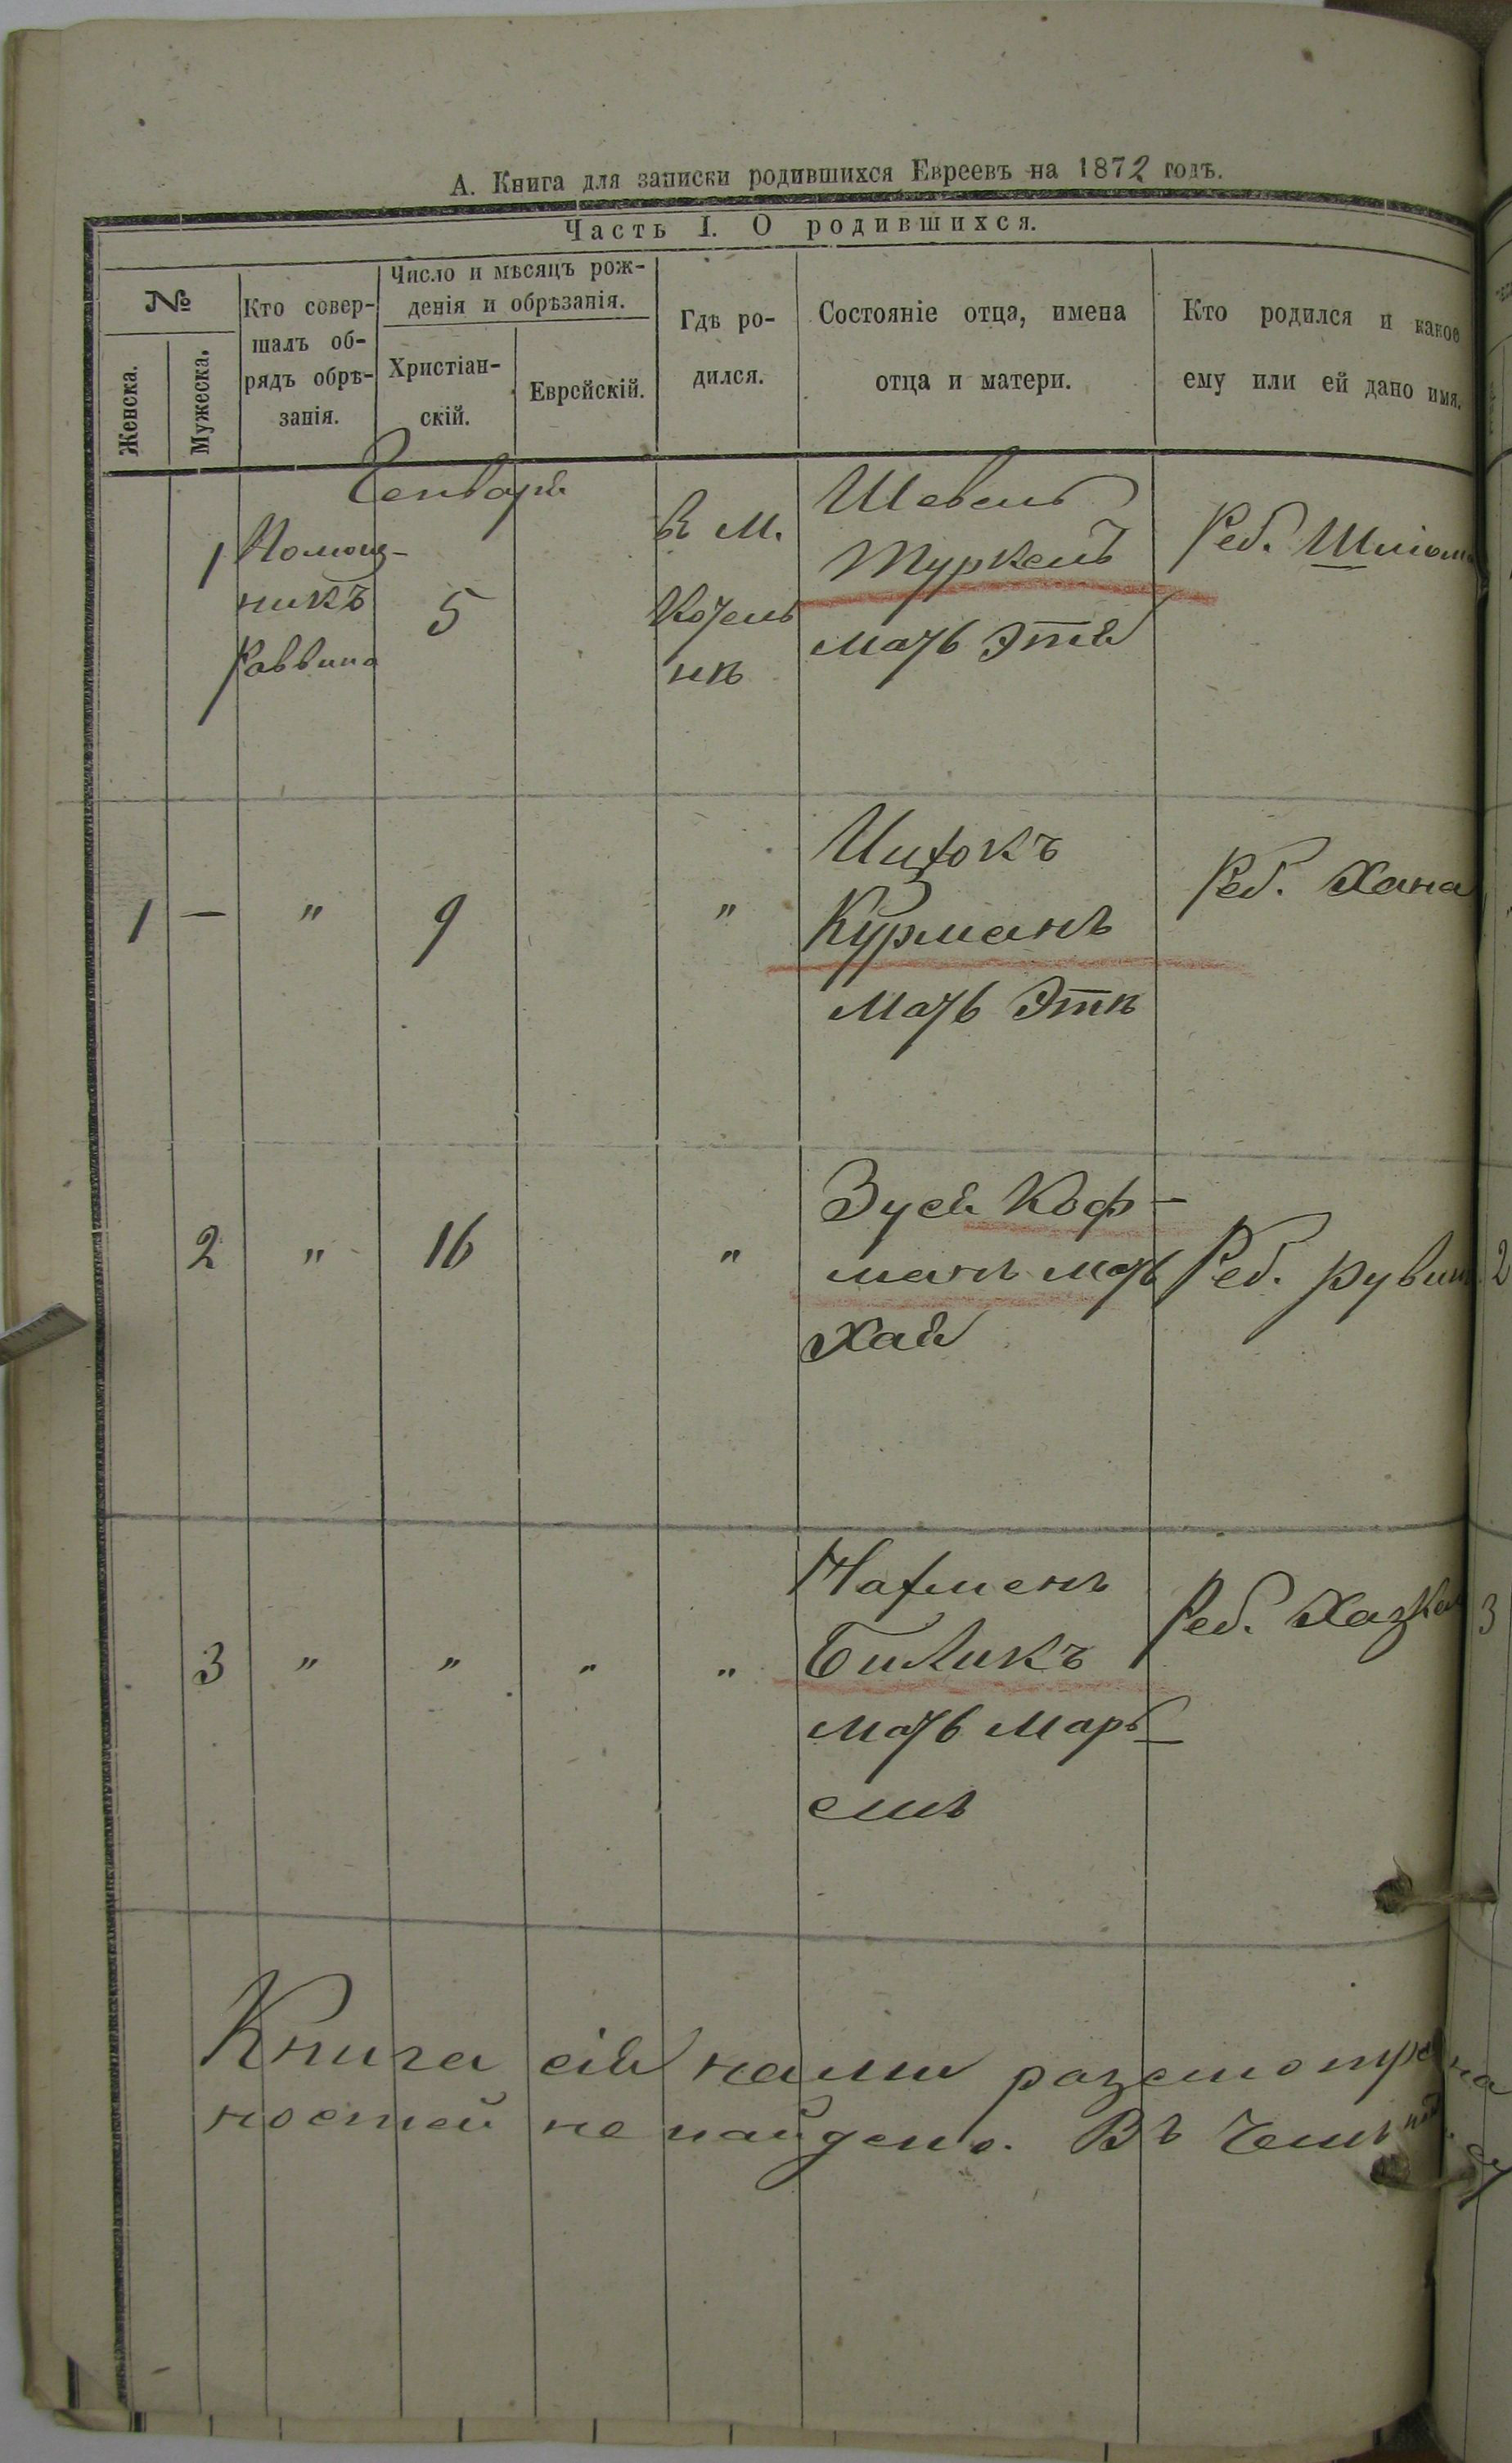 А. Книга для записки родившихся Евреевъ на 1872 годъ.
Часть I. О родившихся.
№
Женска.
Мужеска.
Кто совер-
шалъ об-
рядъ обрѣ-
занія.
Число и мѣсяцъ рож-
денія и обрѣзанія.
Христіан-
скій.
Еврейскій.
Гдѣ ро-
дился.
Состояніе отца, имена
отца и матери.
Кто родился и какое
ему или ей дано имя.
Генваря
1
Помощ-
никъ
Раввина
5
В М.
Шевель
Туркенъ
мать Этя
Реб.
1 — " 9 "
Ицхокъ
Курманъ
Мать Этя
Реб. Хана
2 " 16 "
Зуся Коф-
манъ мать
Хая
Реб. Рувин
3 " " " "
Нахменъ
Биликъ
мать Марь-
Реб. Хазкел
Книга сія нами разсмотрена
ностей не найдено. Въ
2
3